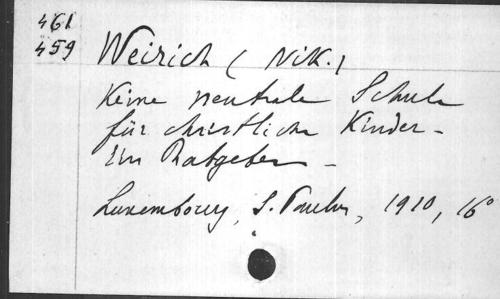 461
459
Weirich (Nik.)
Keine neutrale Schule
für christliche Kinder -
Ein Ratgeber -
Luxembourg, S. Paulus, 1910, 16°